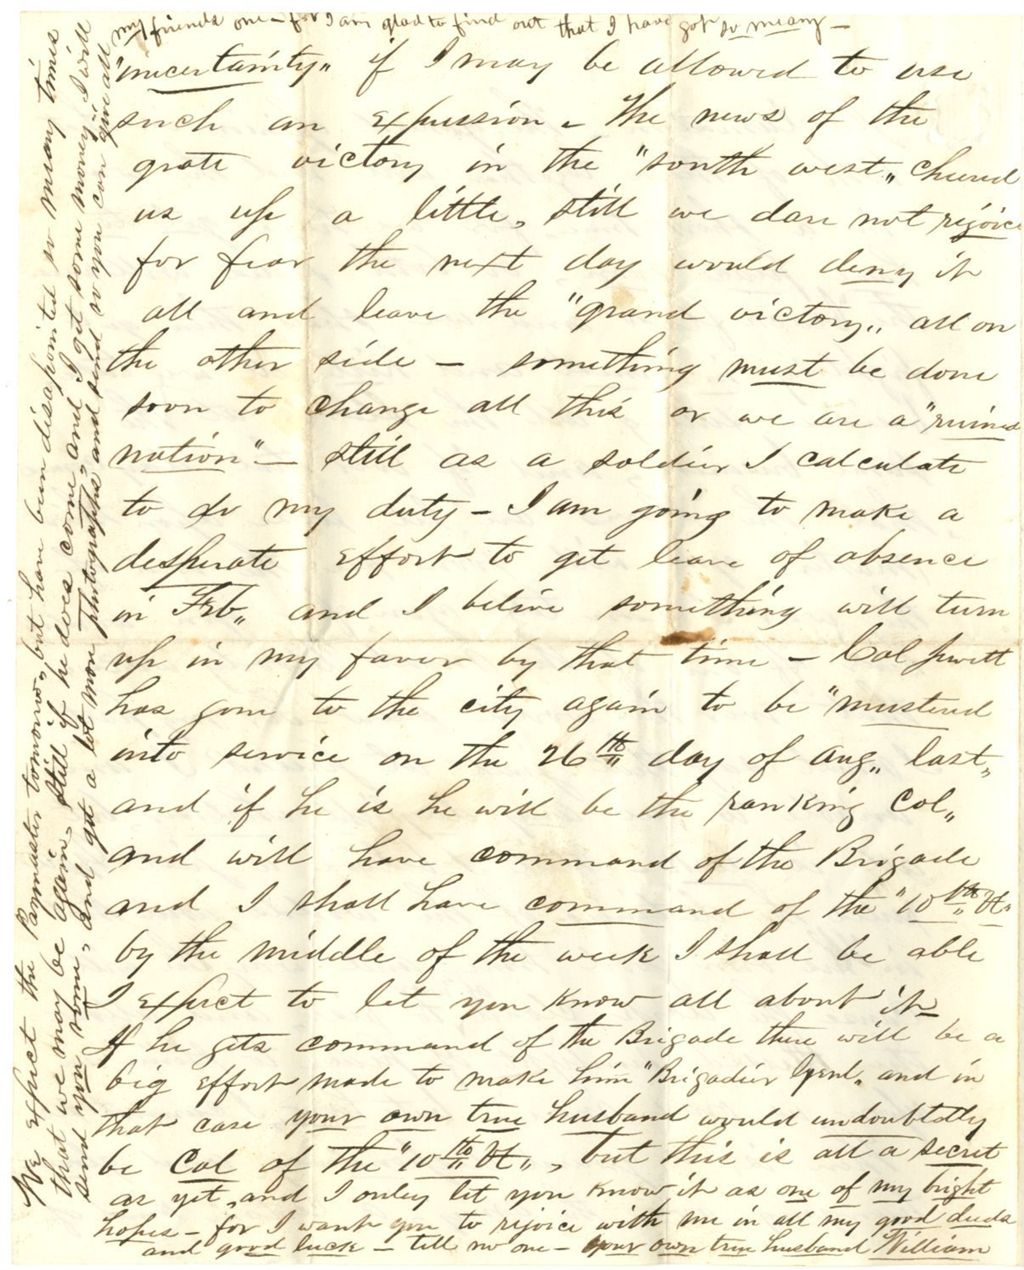 my friends one – for I am glad to find out that I have got so meany –
"uncertainity„ if I may be allowed to use
such an expression – The news of the
grate victory in the "south west„ cheered
us up a little, still we dare not rejoice
for fear the next day would deny it
all and leave the "grand victory„ all on
the other side – something must be done
soon to change all this or we are a "ruined
nation" – still as a soldier I calculate
to do my duty – I am going to make a
desperate effort to get leave of absence
in Feb„ and I belive something will turn
up in my favor by that time – Col Jewett
has gone to the city again to be "mustered
into service on the 26th day of Aug„ last„
and if he is he will be the ranking Col„
and will have command of the Brigade
and I shall have command of the "10th Vt"
by the middle of the week I shall be able
I expect to let you know all about it
If he gets command of the Brigade there will be a
big effort made to make him "Brigadier Genl„ and in
that case your own true husband would undoubtdly
be Col of the "10th Vt„, but this is all a secret
as yet, and I only let you know it as one of my bright
hopes – for I want you to rejoice with me in all my good deeds
and good luck – tell no one – your own true husband William
We expect the Paymaster tomorrow, but have been disapointed so meany times
that we may be again, still if he does come, and I get some money I will
send you some, and get a lot more photographs and send so you can give all